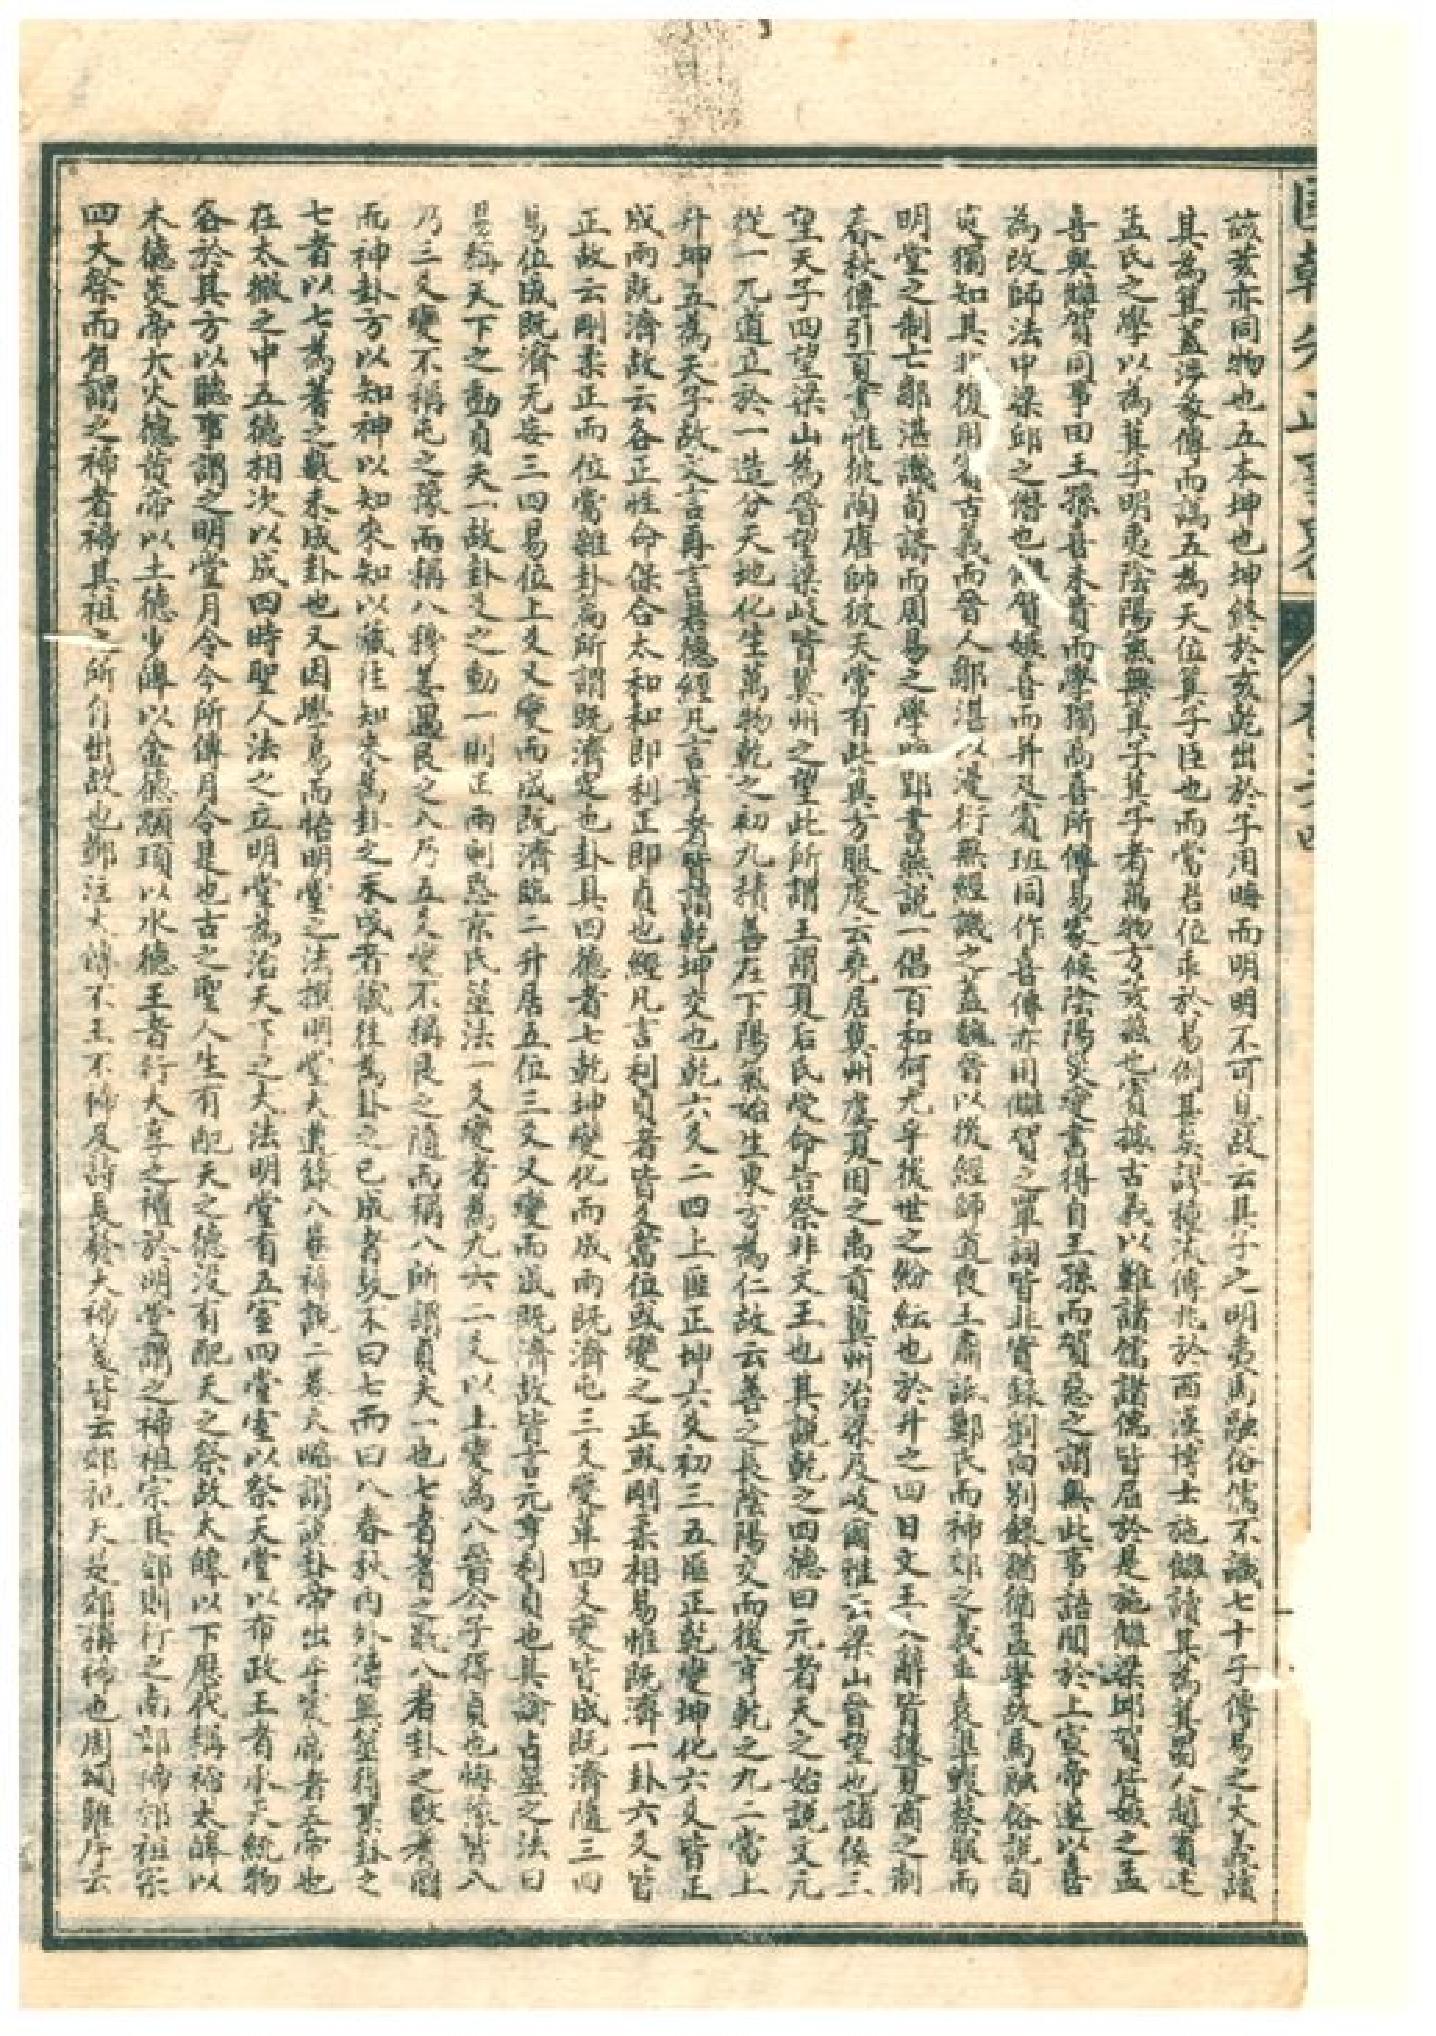 該亥亦同物也五本坤也坤終於亥乾出於子用晦而明明不可息故云其子之明夷馬融俗儒不識七十子傳易之大義讀
其為箕蓋涉彖傳而譌五為天位箕子臣也而當君位乖於易例甚矣謬種流傳兆於西漢博士施讎讀其為箕蜀人趙賓述
孟氏之學以為箕子明夷陰陽氣無其子其子者萬物方荄茲也賓據古義以難諸儒諸儒皆屈於是施讎梁邱賀皆嫉之孟
喜與讎賀同事田王孫喜未貴而學獨高喜所傳易家候陰陽災變書得自王孫而賀惡之謂無此事語聞於上宣帝遂以喜
為改師法中梁邱之僭也讎賀嫉喜而并及賓班固作喜傳亦用讎賀之單詞皆非實錄劉向別錄猶循孟學故馬融俗說荀
爽獨知其非復用賓古義而晉人鄒湛以漫衍無經譏之蓋魏晉以後經師道喪王肅詆鄭氏而禘郊之義乖袁準毀蔡服而
明堂之制亡鄒湛譏荀諝而周易之學晦郢書燕說一倡百和何尤乎後世之紛紜也於升之四曰文王爻辭皆據夏商之制
春秋傳引夏書惟彼陶唐帥彼天常有此冀方服虔云堯居冀州虞夏因之禹貢冀州治梁及岐爾雅云梁山晉望也諸侯三
望天子四望梁山為晉望梁岐皆冀州之望此所謂王謂夏后氏受命告祭非文王也其說乾之四德曰元者天之始說文元
從一兀道立於一造分天地化生萬物乾之初九積善在下陽氣始生東方為仁故云善之長陰陽交而後亨乾之九二當上
升坤五為天子故文言再言君德經凡言亨者皆謂乾坤交也乾六爻二四上匪正坤六爻初三五匪正乾變坤化六爻皆正
成兩既濟故云各正性命保合太和和即利正即貞也經凡言利貞者皆爻當位或變之正或剛柔相易惟既濟一卦六爻皆
正故云剛柔正而位當雜卦篇所謂既濟定也卦具四德者七乾坤變化而成兩既濟屯三爻變革四爻變皆成既濟隨三四
易位成既濟无妄三四易位上爻又變而成既濟臨二升居五位三爻又變而成既濟故皆言元亨利貞也其論占筮之法曰
易稱天下之動貞夫一故卦爻之動一則正兩則惑京氏筮法一爻變者為九六二爻以上變為八晉公子得貞屯悔豫皆八
乃三爻變不稱屯之豫而稱八穆姜遇艮之八乃五爻變不稱艮之隨而稱八所謂貞夫一也七者蓍之數八者卦之數蓍圓
而神卦方以知神以知來知以藏往知來為卦之未成者藏往為卦之已成者故不曰七而曰八春秋內外傳無筮得某卦之
七者以七為蓍之數未成卦也又因學易而悟明堂之法撰明堂大道錄八卷禘說二卷大略謂說卦帝出乎震帝者五帝也
在太微之中五德相次以成四時聖人法之立明堂為治天下之大法明堂有五室四堂室以祭天堂以布政王者承天統物
各於其方以聽事謂之明堂月令今所傳月令是也古之聖人生有配天之德沒有配天之祭故太皞以下歷代稱禘太皞以
木德炎帝大火德黃帝以土德少皞以金德顓頊以水德王者行大享之禮於明堂謂之禘祖宗其郊則行之南郊禘郊祖宗
四大祭而皆謂之禘者禘其祖之所自出故也鄭注大傳不王不禘及詩長發大禘箋皆云郊祀天是郊稱禘也周頌雝序云